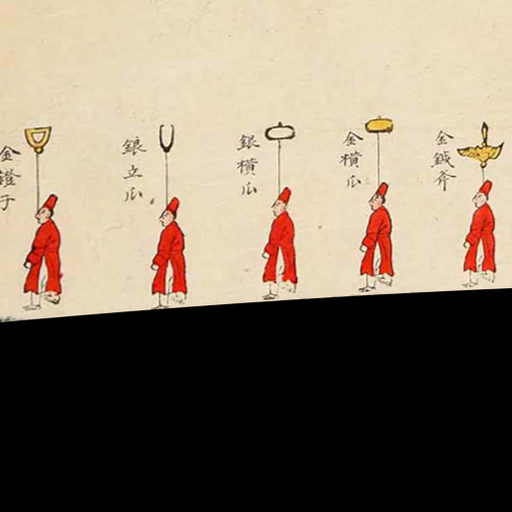 金鐙子
銀立瓜
銀橫瓜
金橫瓜
金鉞斧